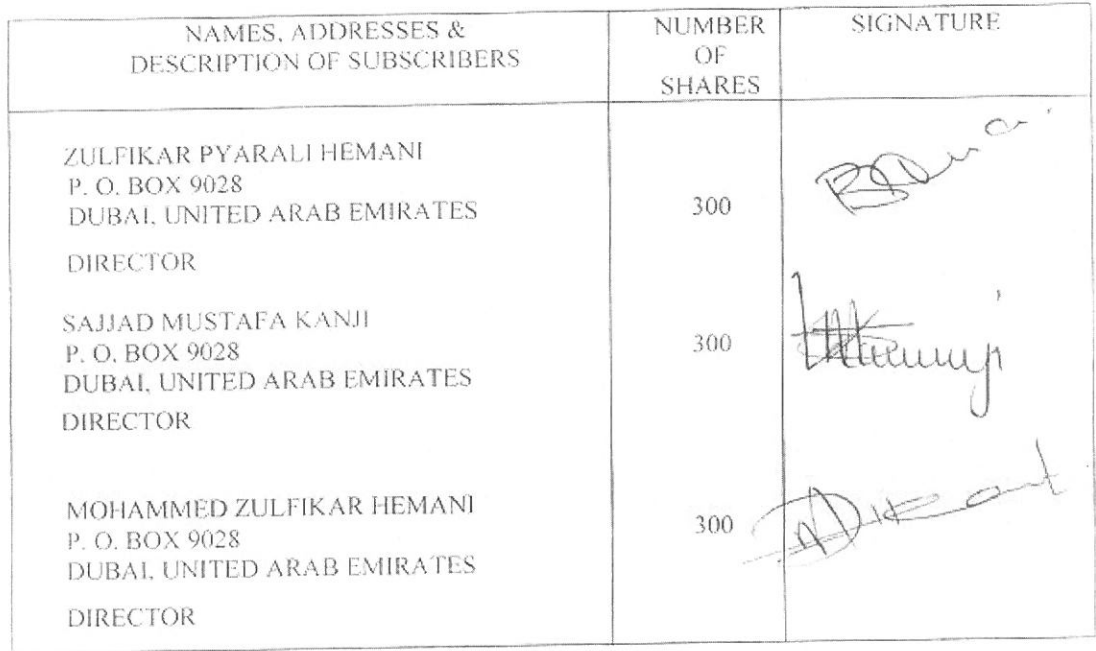 NAMES, ADDRESSES &
DESCRIPTION OF SUBSCRIBERS
NUMBER
OF
SHARES
SIGNATURE
ZULFIKAR PYARALI HEMANI
P. O. BOX 9028
DUBAI, UNITED ARAB EMIRATES
300
DIRECTOR
SAJJAD MUSTAFA KANJI
P. O. BOX 9028
300
DUBAI, UNITED ARAB EMIRATES
DIRECTOR
MOHAMMED ZULFIKAR HEMANI
P. O. BOX 9028
300
DUBAI, UNITED ARAB EMIRATES
DIRECTOR